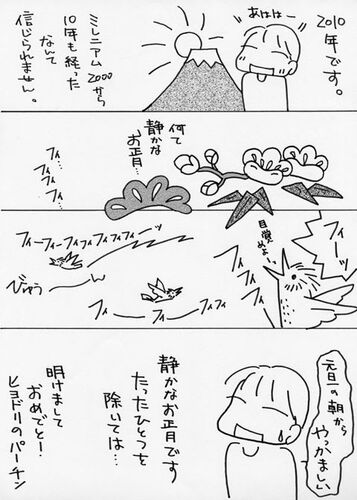 2010
年です。
あははー
ミレニアム2000から
10年も経った
なんて
信じられません。
何て
静かな
お正月…
フィ…
フィ…
フィ…
フィーッ
目覚めよ!
フィ
フィ
フィ
フィーフィーフィフィフィフィフィーッ
びゅうーん
フィー
フィー
フィフィ
元旦の朝から
やっかましい
静かなお正月です
たったひとつを
除いては…
明けまして
おめでとー!
ヒヨドリのパーチン